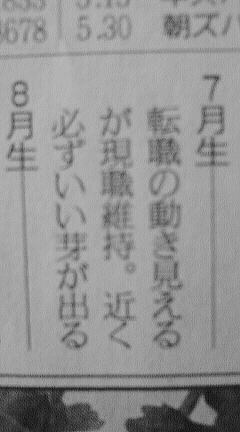 5.30
朝ズバ
7月生
転職の動き見える
が現職維持。近く
必ずいい芽が出る
8月生